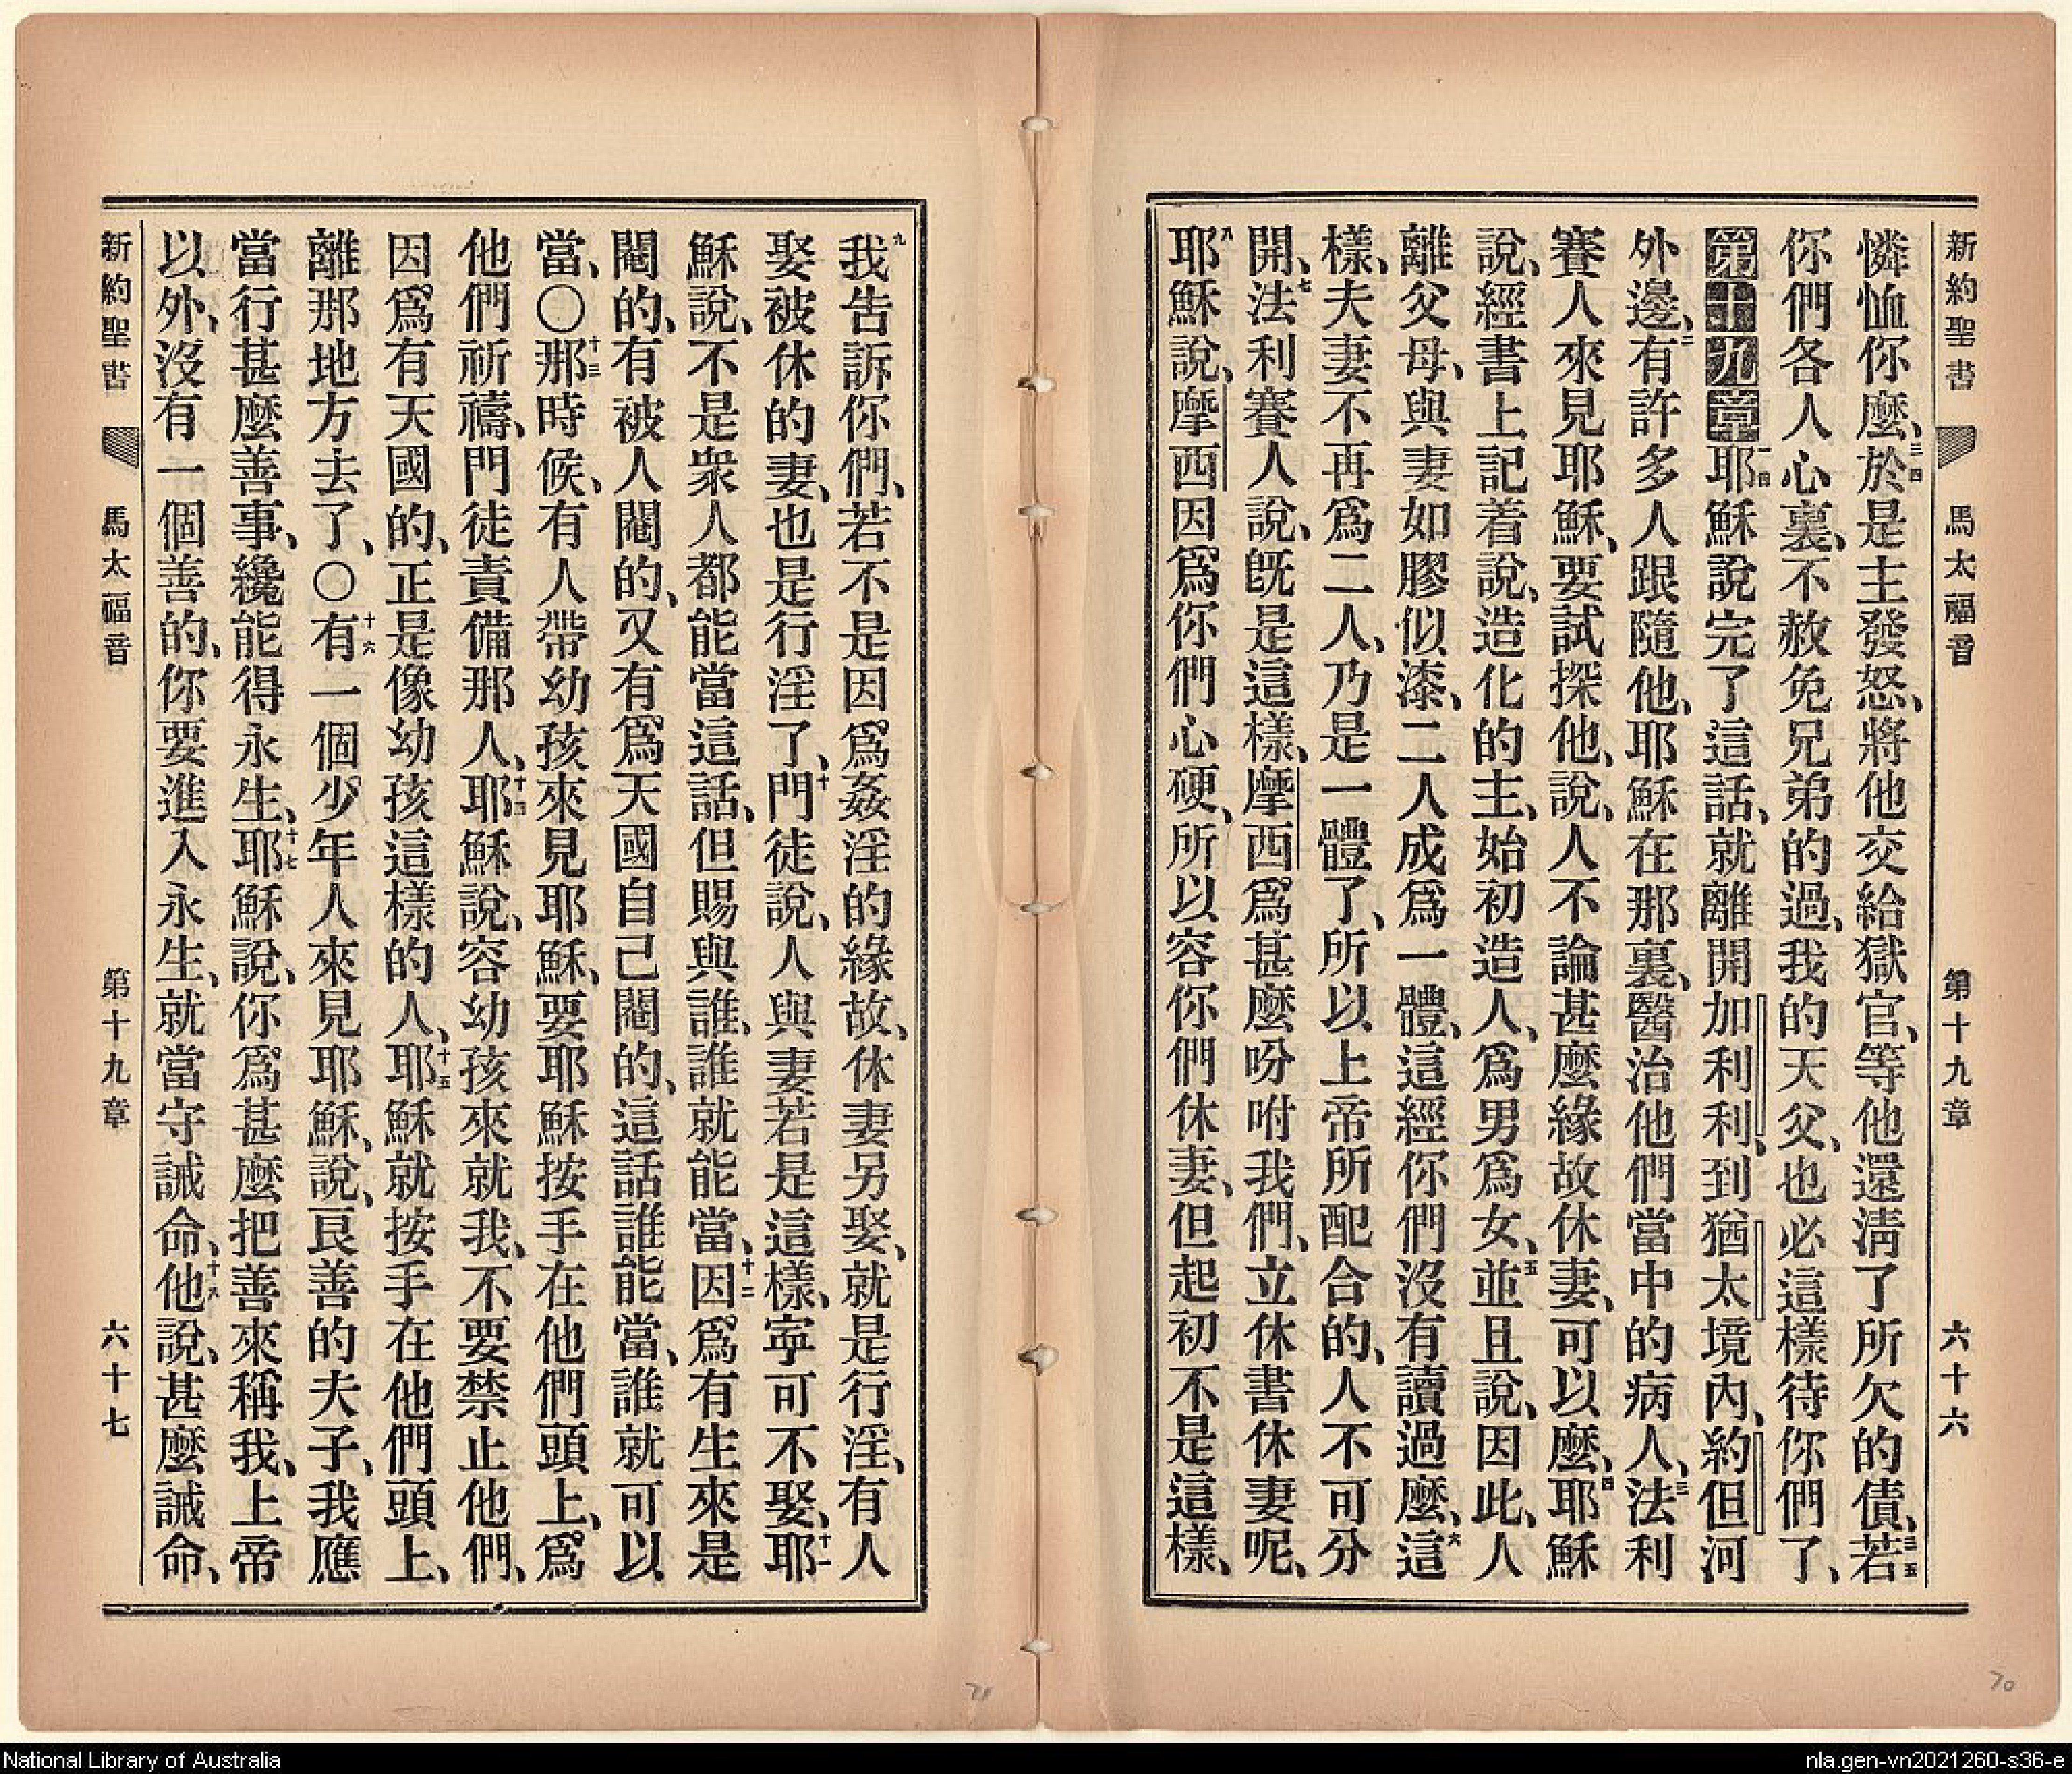 新約聖書 馬太福音 第十九章 六十六
憐恤你麼、三四於是主發怒、將他交給獄官、等他還淸了所欠的債、三五若
你們各人心裏、不赦免兄弟的過、我的天父、也必這樣待你們了、
第十九章一耶穌說完了這話、就離開加利利、到猶太境內、約但河
外邊、二有許多人跟隨他、耶穌在那裏、醫治他們當中的病人、三法利
賽人來見耶穌、要試探他、說、人不論甚麼緣故休妻、可以麼、四耶穌
說、經書上記着說、造化的主、始初造人、爲男爲女、五並且說、因此、人
離父母、與妻如膠似漆、二人成爲一體、這經你們沒有讀過麼、六這
樣、夫妻不再爲二人、乃是一體了、所以上帝所配合的、人不可分
開、七法利賽人說、旣是這樣、摩西爲甚麼吩咐我們、立休書休妻呢、
八耶穌說、摩西因爲你們心硬、所以容你們休妻、但起初不是這樣、
九我告訴你們、若不是因爲姦淫的緣故、休妻另娶、就是行淫、有人
娶被休的妻、也是行淫了、十門徒說、人與妻若是這樣、寧可不娶、十一耶
穌說、不是衆人都能當這話、但賜與誰、誰就能當、十二因爲有生來是
閹的、有被人閹的、又有爲天國自己閹的、這話誰能當、誰就可以
當、〇十三那時候、有人帶幼孩來見耶穌、要耶穌按手在他們頭上、爲
他們祈禱、門徒責備那人、十四耶穌說、容幼孩來就我、不要禁止他們、
因爲有天國的、正是像幼孩這樣的人、十五耶穌就按手在他們頭上、
離那地方去了、〇十六有一個少年人來見耶穌、說、良善的夫子、我應
當行甚麼善事、纔能得永生、十七耶穌說、你爲甚麼把善來稱我、上帝
以外、沒有一個善的、你要進入永生、就當守誡命、十八他說、甚麼誡命、
新約聖書 馬太福音 第十九章 六十七
71
70
National Library of Australia
nla.gen-vn2021260-s36-e